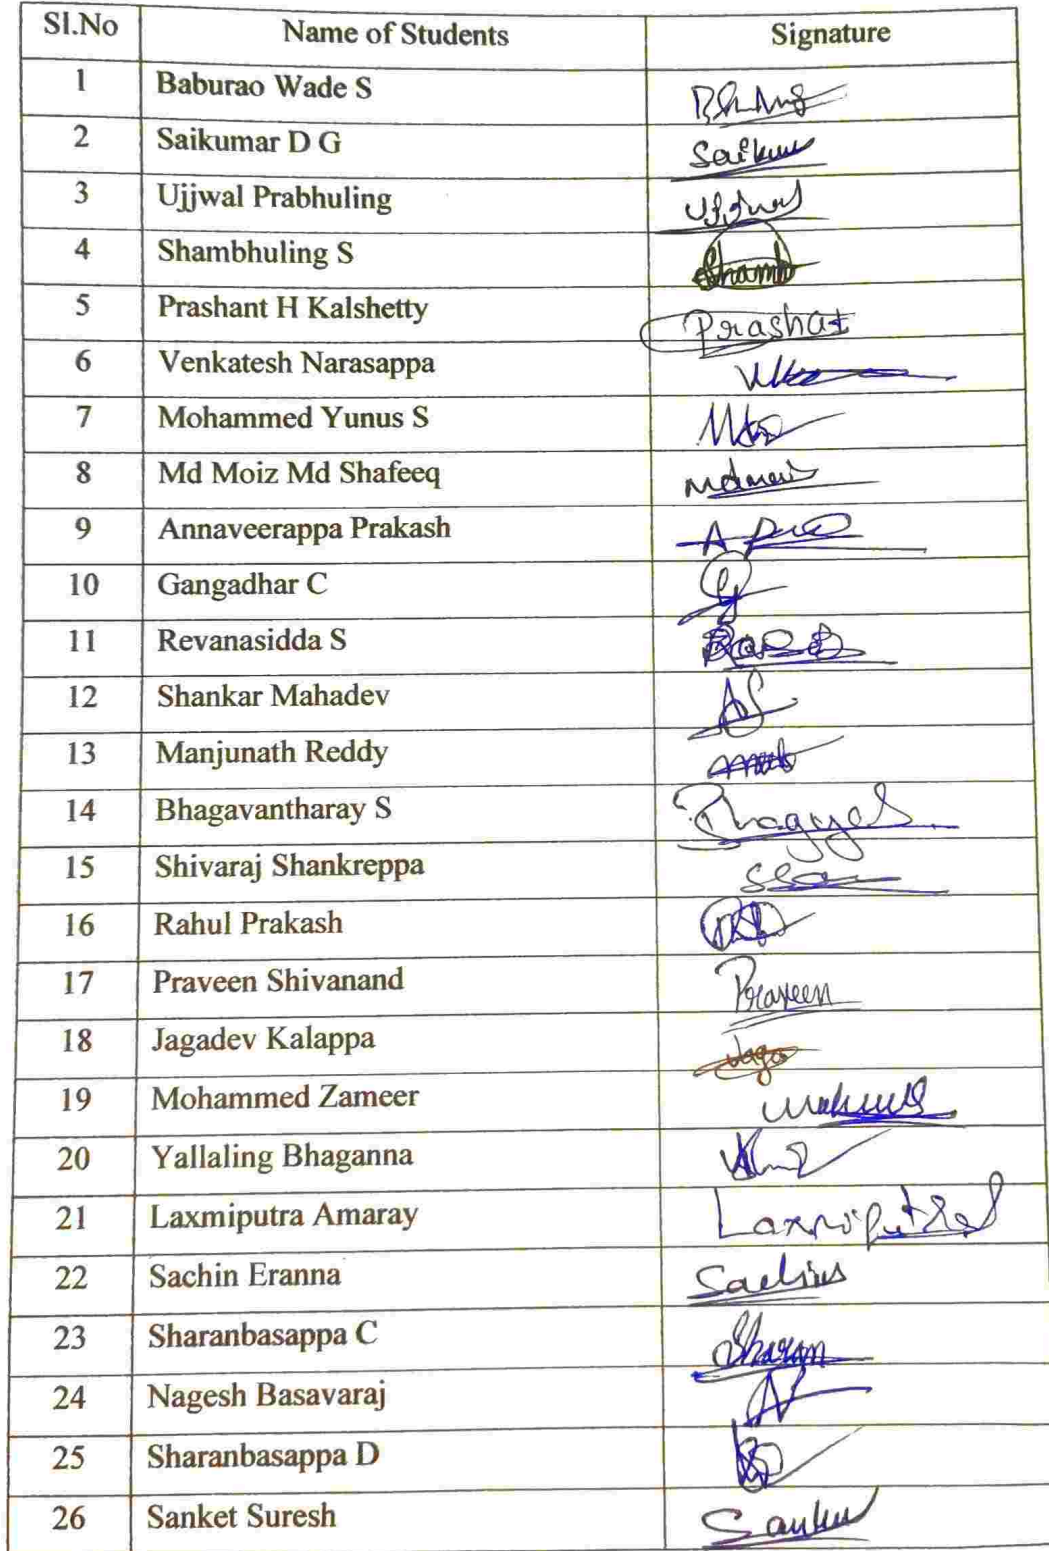 Sl.No Name of Students Signature
1 Baburao Wade S
2 Saikumar D G Saikum
3 Ujjwal Prabhuling Ujjwal
4 Shambhuling S Shamb
5 Prashant H Kalshetty Prashat
6 Venkatesh Narasappa
7 Mohammed Yunus S
8 Md Moiz Md Shafeeq
9 Annaveerappa Prakash
10 Gangadhar C
11 Revanasidda S
12 Shankar Mahadev
13 Manjunath Reddy
14 Bhagavantharay S
15 Shivaraj Shankreppa
16 Rahul Prakash
17 Praveen Shivanand Praveen
18 Jagadev Kalappa Jaga
19 Mohammed Zameer
20 Yallaling Bhaganna
21 Laxmiputra Amaray
22 Sachin Eranna Sachin
23 Sharanbasappa C Sharan
24 Nagesh Basavaraj
25 Sharanbasappa D
26 Sanket Suresh